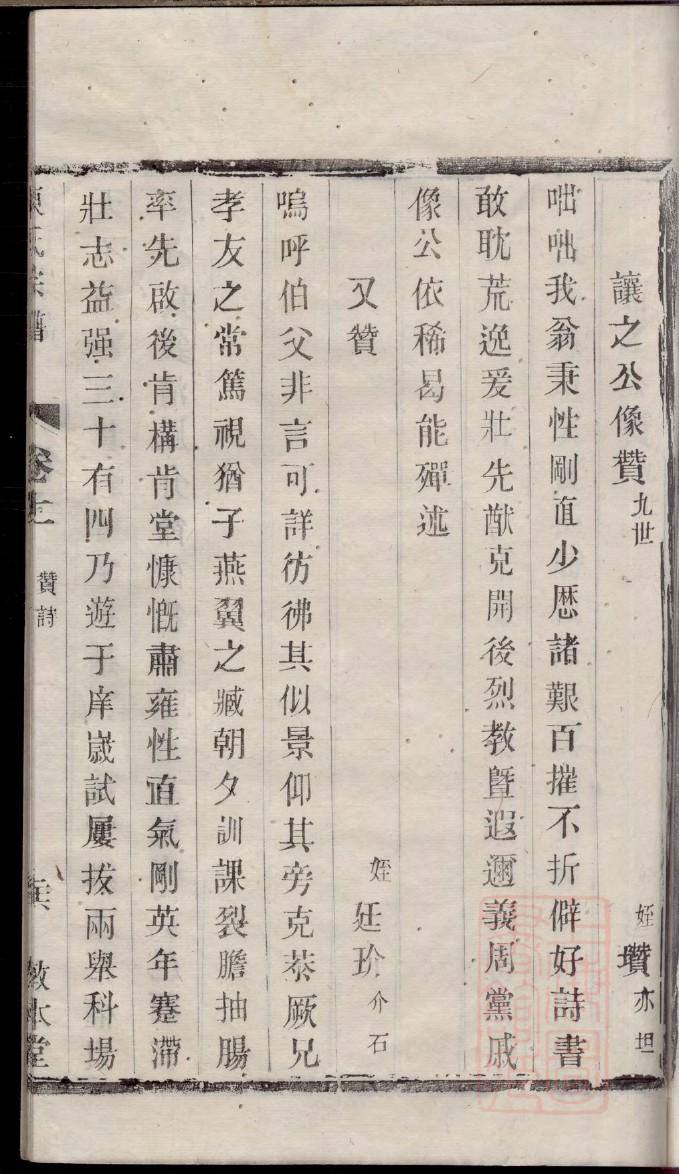 讓之公像贊 九世 姪 瓚 亦坦
咄咄我翁秉性剛直少歷諸艱百摧不折僻好詩書
敢耽荒逸爰壯先猷克開後烈教暨遐邇義周黨戚
像公依稀曷能殫述
又贊 姪 廷玠 介石
嗚呼伯父非言可詳彷彿其似景仰其旁克恭厥兄
孝友之常篤視猶子燕翼之臧朝夕訓課裂膽抽腸
率先啟後肯構肯堂慷慨肅雍性直氣剛英年蹇滯
壯志益强三十有四乃遊于庠嵗試屢拔兩舉科場
氏宗譜 卷 贊詩 敦本堂